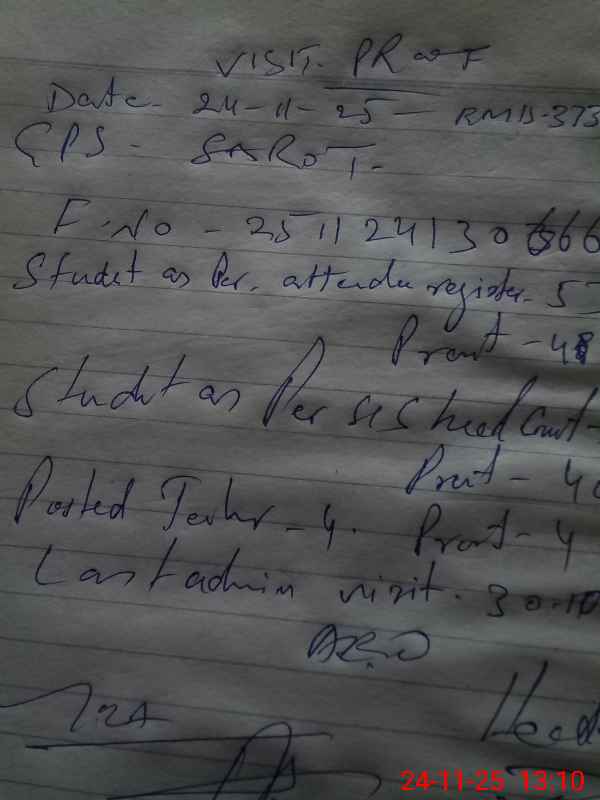 VISIT. PROOF
Date - 24-11-25 - RMB-373
GPS - SAROT-
F. No - 251124130666
Studet as Per. attendce register - 5
Prent - 48
Studet as Per SIS Head Count -
Prent - 4
Posted Techr - 4. Prent - 4
Last admin visit. 30.10
AEO
Head
24-11-25 13:10